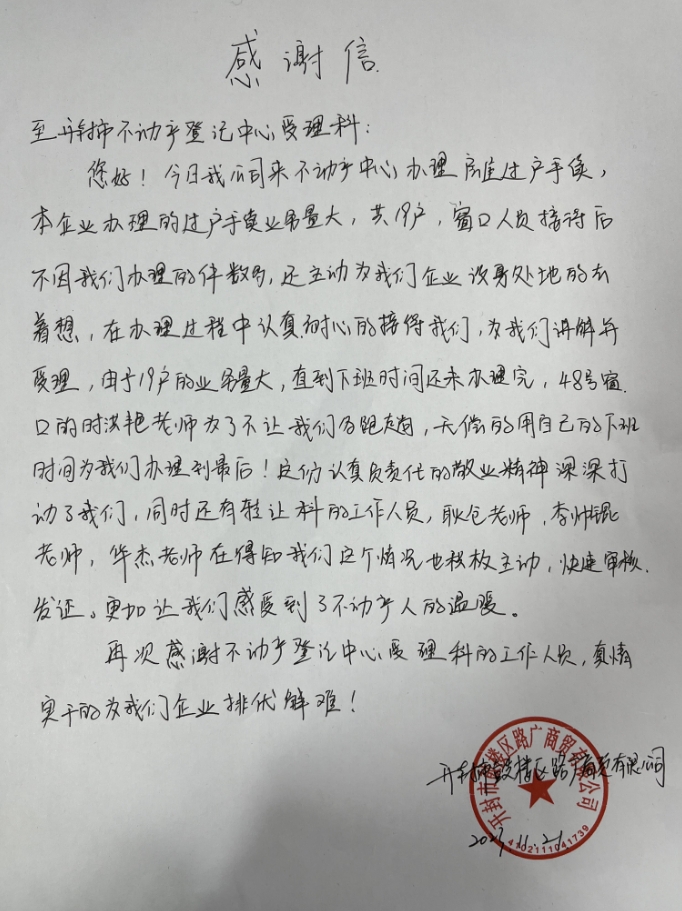 感谢信
至开封市不动产登记中心受理科：
您好！今日我公司来不动产中心办理房屋过户手续，
本企业办理的过户手续业务量大，共19户，窗口人员接待后
不因我们办理的件数多，还主动为我们企业设身处地的去
着想，在办理过程中认真耐心的接待我们，为我们讲解并
受理，由于19户的业务量大，直到下班时间还未办理完，48号窗
口的时洪艳老师为了不让我们多跑趟，无偿的用自己的下班
时间为我们办理到最后！这份认真负责任的敬业精神深深打
动了我们，同时还有转让科的工作人员，耿仓老师，李帅锟
老师，华杰老师在得知我们这个情况也积极主动，快速审核.
发证。更加让我们感受到了不动产人的温暖。
再次感谢不动产登记中心受理科的工作人员，真情
实干的为我们企业排忧解难！
开封市鼓楼区路广商贸有限公司
2023.11.21
开封市鼓楼区路广商贸有限公司
4102111041739